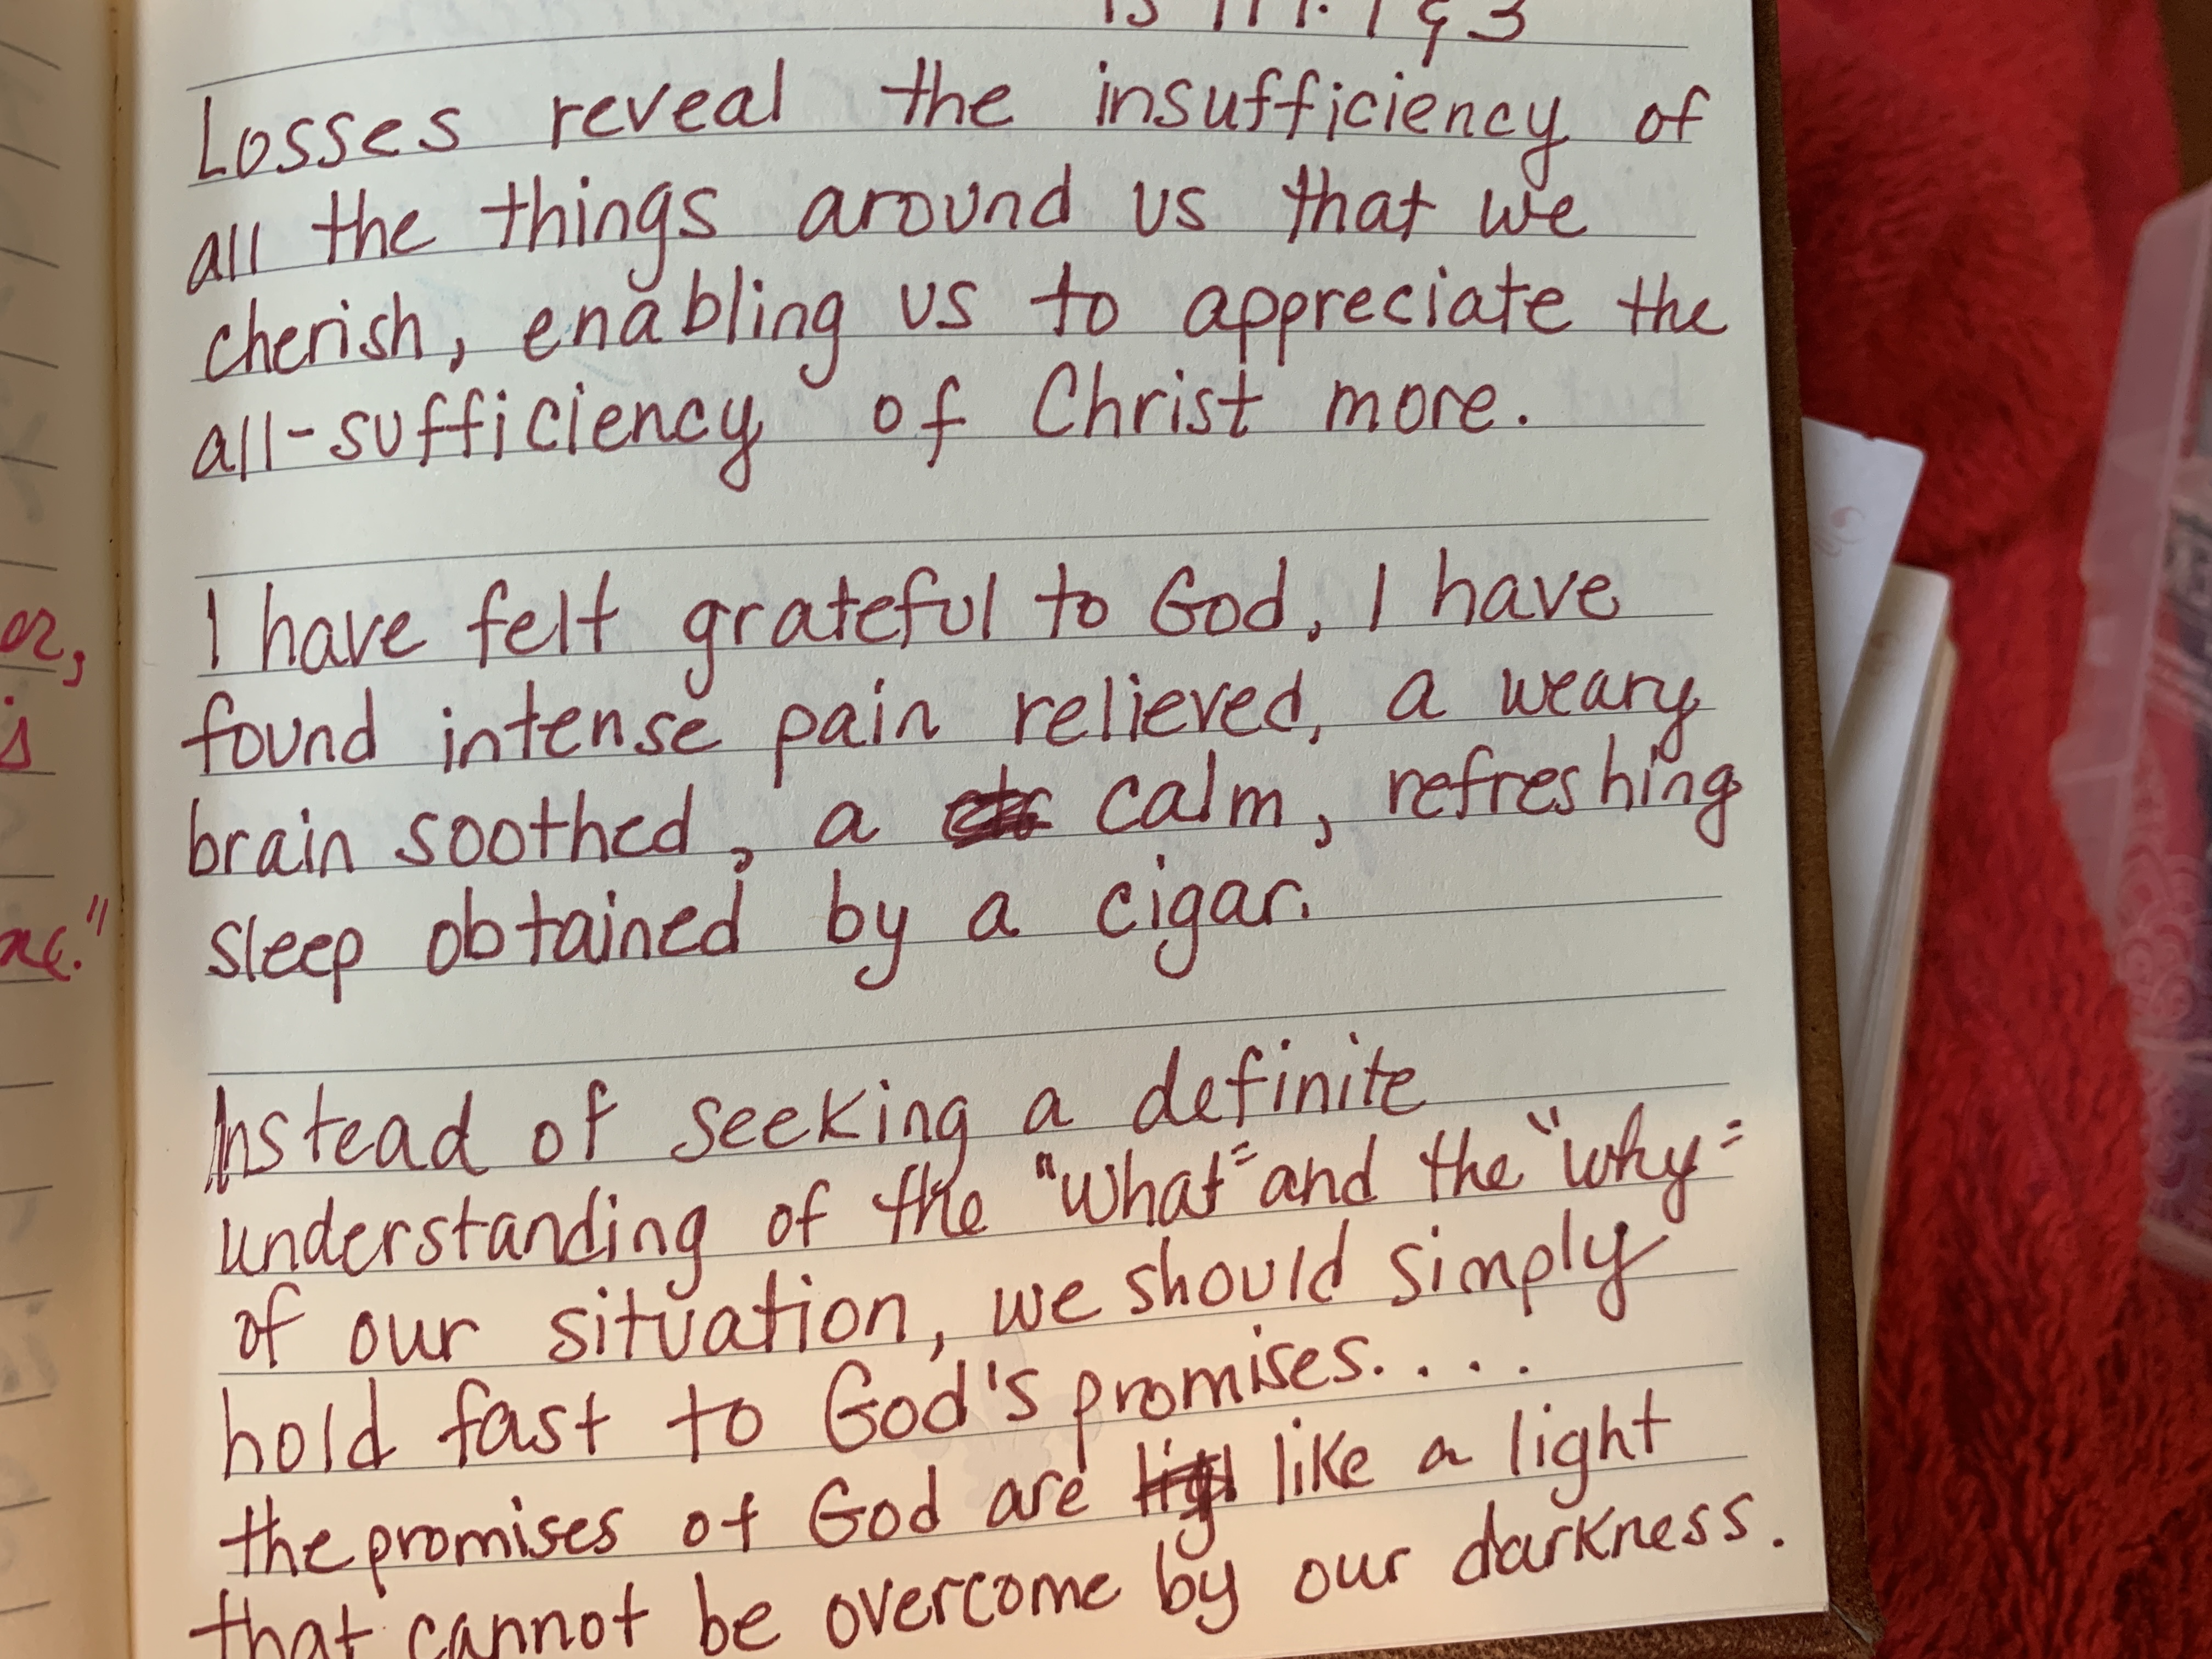 Losses reveal the insufficiency of
all the things around us that we
cherish, enabling us to appreciate the
all-sufficiency of Christ more.
I have felt grateful to God, I have
found intense pain relieved, a weary
brain soothed, a calm, refreshing
sleep obtained by a cigar.
Instead of seeking a definite
understanding of the "what" and the "why"
of our situation, we should simply
hold fast to God's promises....
the promises of God are like a light
that cannot be overcome by our darkness.